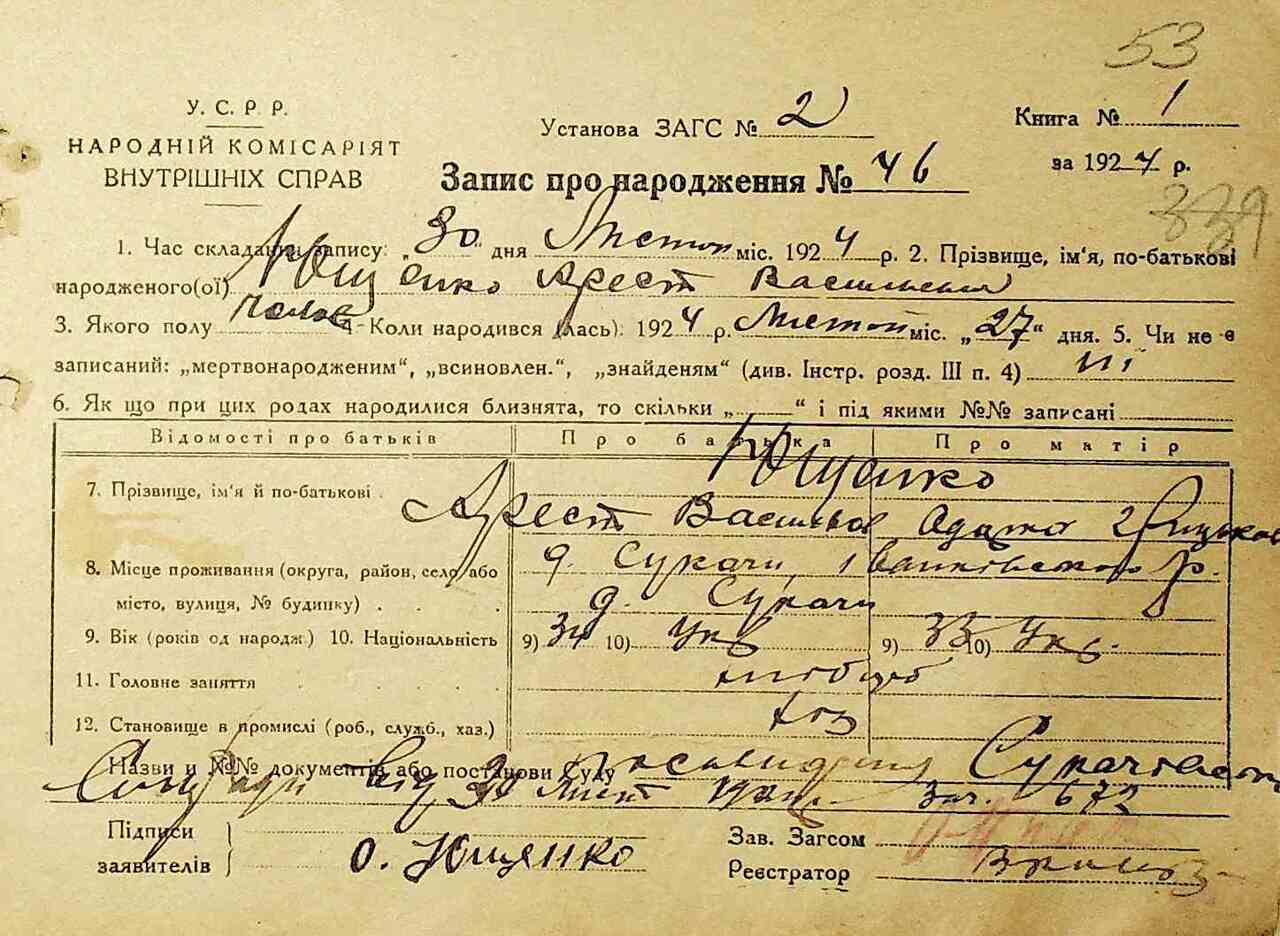 53
У. С. Р. Р.
НАРОДНІЙ КОМІСАРІЯТ
ВНУТРІШНІХ СПРАВ
Установа ЗАГС № 2
Книга № 1
за 1924 р.
Запис про народження № 46
339
1. Час складання запису: „30“ дня Листоп міс. 1924 р. 2. Прізвище, ім'я, по-батькові
народженого(ої) Ющенко Арест Васильевич
3. Якого полу Чолов 4. Коли народився (лась): 1924 р. Листоп міс. „27“ дня. 5. Чи не є
записаний: „мертвонародженим“, „всиновлен.“, „знайденям“ (див. Інстр. розд. III п. 4) ні
6. Як що при цих родах народилися близнята, то скільки „ “ і під якими №№ записані
Відомості про батьків Про батька Про матір
Ющенко
7. Прізвище, ім'я й по-батькові
Арест Васильов
8. Місце проживання (округа, район, село або д. Сукачи Іванківского р.
місто, вулиця, № будинку) д. Сукачи
9. Вік (років од народж.) 10. Національність 9) 34 10) Укр 9) 33 10) Укр.
11. Головне заняття хлібороб
12. Становище в промислі (роб., служб., хаз.) хоз
Назви и №№ документів або постанови Суду
від 30 Лист зач. 672
Підписи
заявителів
О. Ющенко
Зав. Загсом
Реєстратор